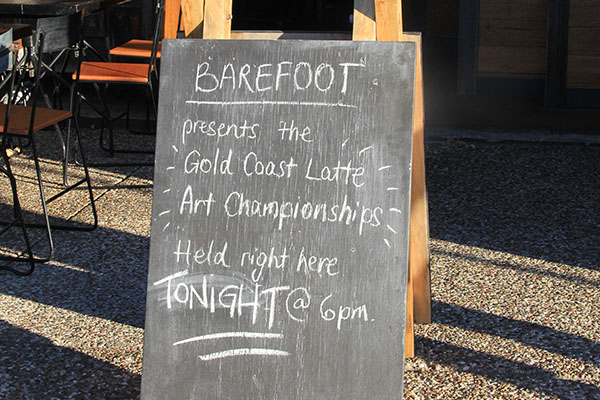 BAREFOOT
presents the
Gold Coast Latté
Art Championships
Held right here
TONIGHT @ 6pm.